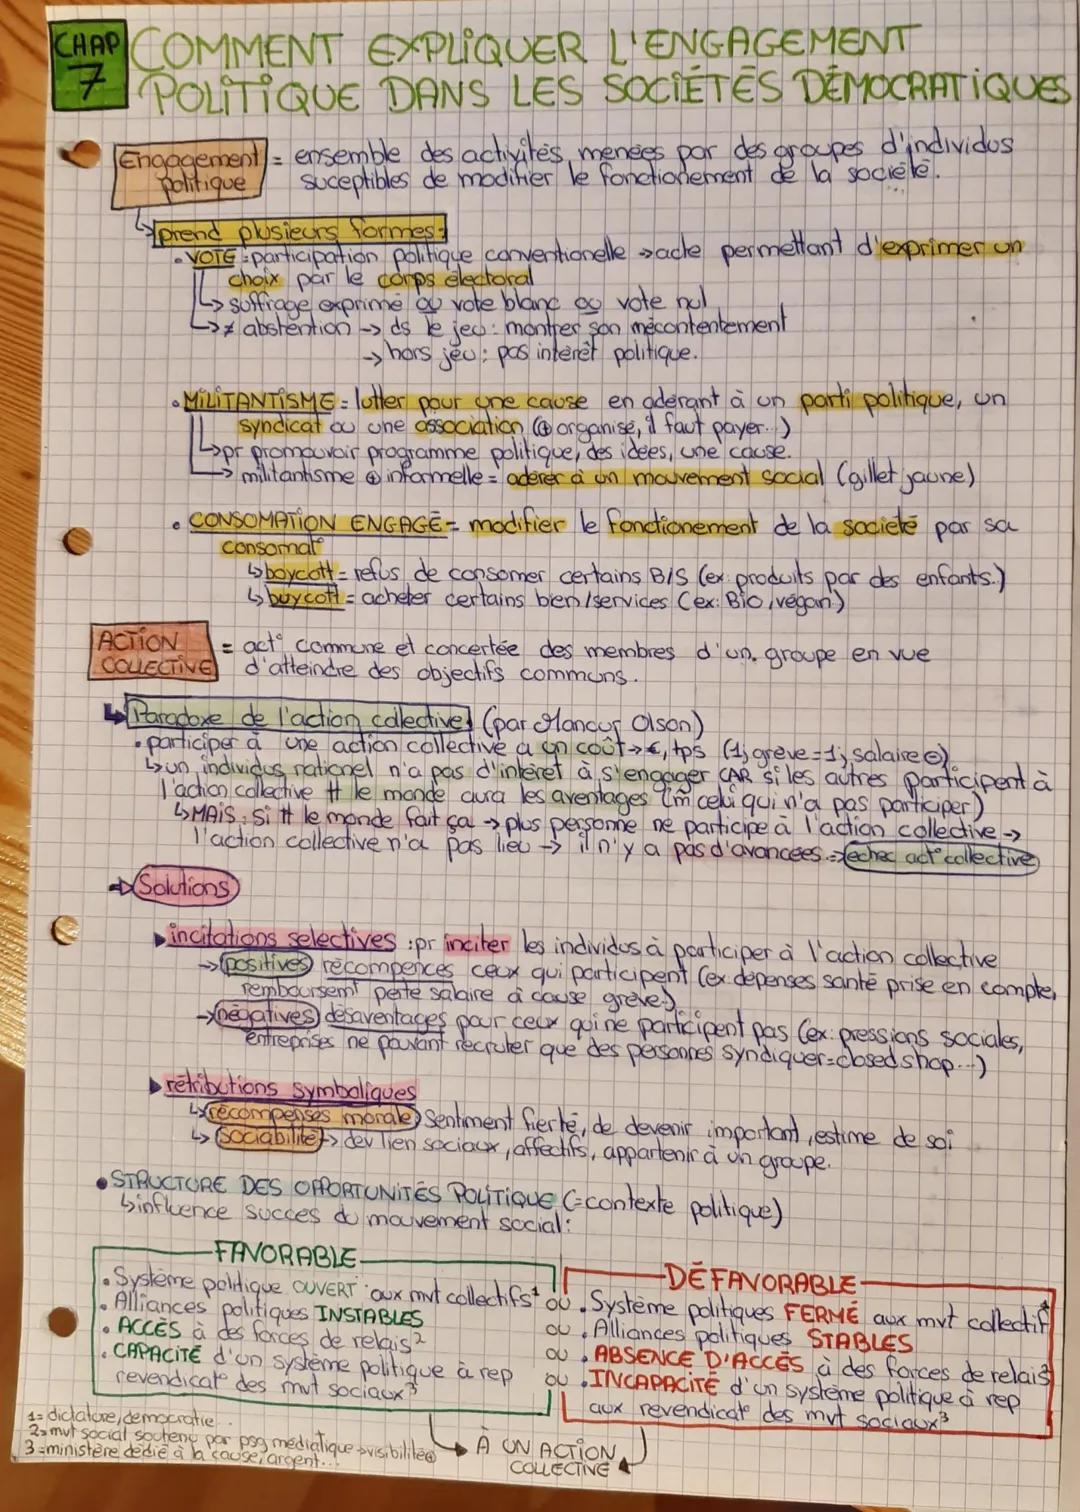 CHAP 7
COMMENT EXPLIQUER L'ENGAGEMENT
POLITIQUE DANS LES SOCIÉTÉS DÉMOCRATIQUES
Engagement politique = ensemble des activités, menées par des groupes d'individus
suceptibles de modifier le fonctionement de la société.
↳ prend plusieurs formes:
• VOTE: participation politique conventionelle → acte permettant d'exprimer un
choix par le corps électoral
↳ suffrage exprimé ou vote blanc ou vote nul
↳ ≠ abstention → ds le jeu: montrer son mécontentement
→ hors jeu: pas intérêt politique.
• MILITANTISME = lutter pour une cause en adérant à un parti politique, un
syndicat ou une association (⊕ organisé, il faut payer...)
↳ pr promouvoir programme politique, des idées, une cause.
↳ militantisme ⊕ informelle = adérer à un mouvement social (gillet jaune)
• CONSOMATION ENGAGÉ = modifier le fonctionement de la société par sa
consomat°
↳ boycott = refus de consomer certains B/S (ex: produits par des enfants.)
↳ buycott = acheter certains bien/services (ex: Bio, végan)
ACTION COLLECTIVE = act° commune et concertée des membres d'un groupe en vue
d'atteindre des objectifs communs.
↳ Paradoxe de l'action collective (par Mancur Olson)
• participer à une action collective a un coût → €, tps (1j grève = 1j salaire ⊖)
↳ un individus rationel n'a pas d'intéret à s'engager CAR si les autres participent à
l'action collective tt le monde aura les aventages (m̂ celui qui n'a pas participer)
↳ MAIS: si tt le monde fait ça! → plus personne ne participe à l'action collective →
l'action collective n'a pas lieu → il n'y a pas d'avancées → echec act° collective
→ Solutions
▶ incitations selectives: pr inciter les individus à participer à l'action collective
→ positives récompences ceux qui participent (ex: dépenses santé prise en compte,
remboursemt perte salaire à cause grève.)
→ négatives désaventages pour ceux qui ne participent pas (ex: pressions sociales,
entreprises ne pouvant recruter que des personnes syndiquer = closed shop...)
▶ rétributions symboliques
↳ récompenses morale sentiment fierté, de devenir important, estime de soi
↳ sociabilité → dev lien sociaux, affectifs, appartenir à un groupe.
• STRUCTURE DES OPPORTUNITÉS POLITIQUE (= contexte politique)
↳ influence succes du mouvement social:
FAVORABLE
• Système politique OUVERT aux mvt collectifs¹
• Alliances politiques INSTABLES
• ACCÈS à des forces de relais²
• CAPACITÉ d'un système politique à rep
revendicat° des mvt sociaux³
DÉFAVORABLE
ou • Système politiques FERMÉ aux mvt collectif¹
ou • Alliances politiques STABLES
ou • ABSENCE D'ACCÈS à des forces de relais²
ou • INCAPACITÉ d'un système politique à rep
aux revendicat° des mvt sociaux³
1= dictature, democratie..
2= mvt social soutenu par psg médiatique → visibilité ⊕
3= ministère dédié à la cause, argent...
→ À UN ACTION
COLLECTIVE